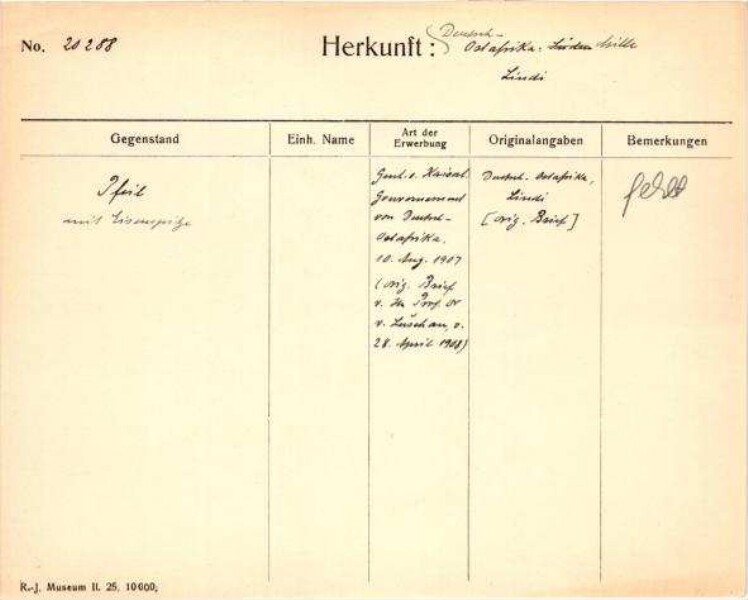 No. 20288
Herkunft: Deutsch-
Ostafrika: Süden Mitte
Lindi
Gegenstand Einh. Name Art der Erwerbung Originalangaben Bemerkungen
Pfeil
mit Eisenspitze
Gesch. v. Kaiserl.
Gouvernement
von Deutsch-
Ostafrika.
10. Aug. 1907
(orig. Brief
v. Hr Prof. Dr
v. Luschan, v.
28. April 1908)
Deutsch-Ostafrika,
Lindi
[orig. Brief]
fehlt
R.-J. Museum II. 25. 10000;